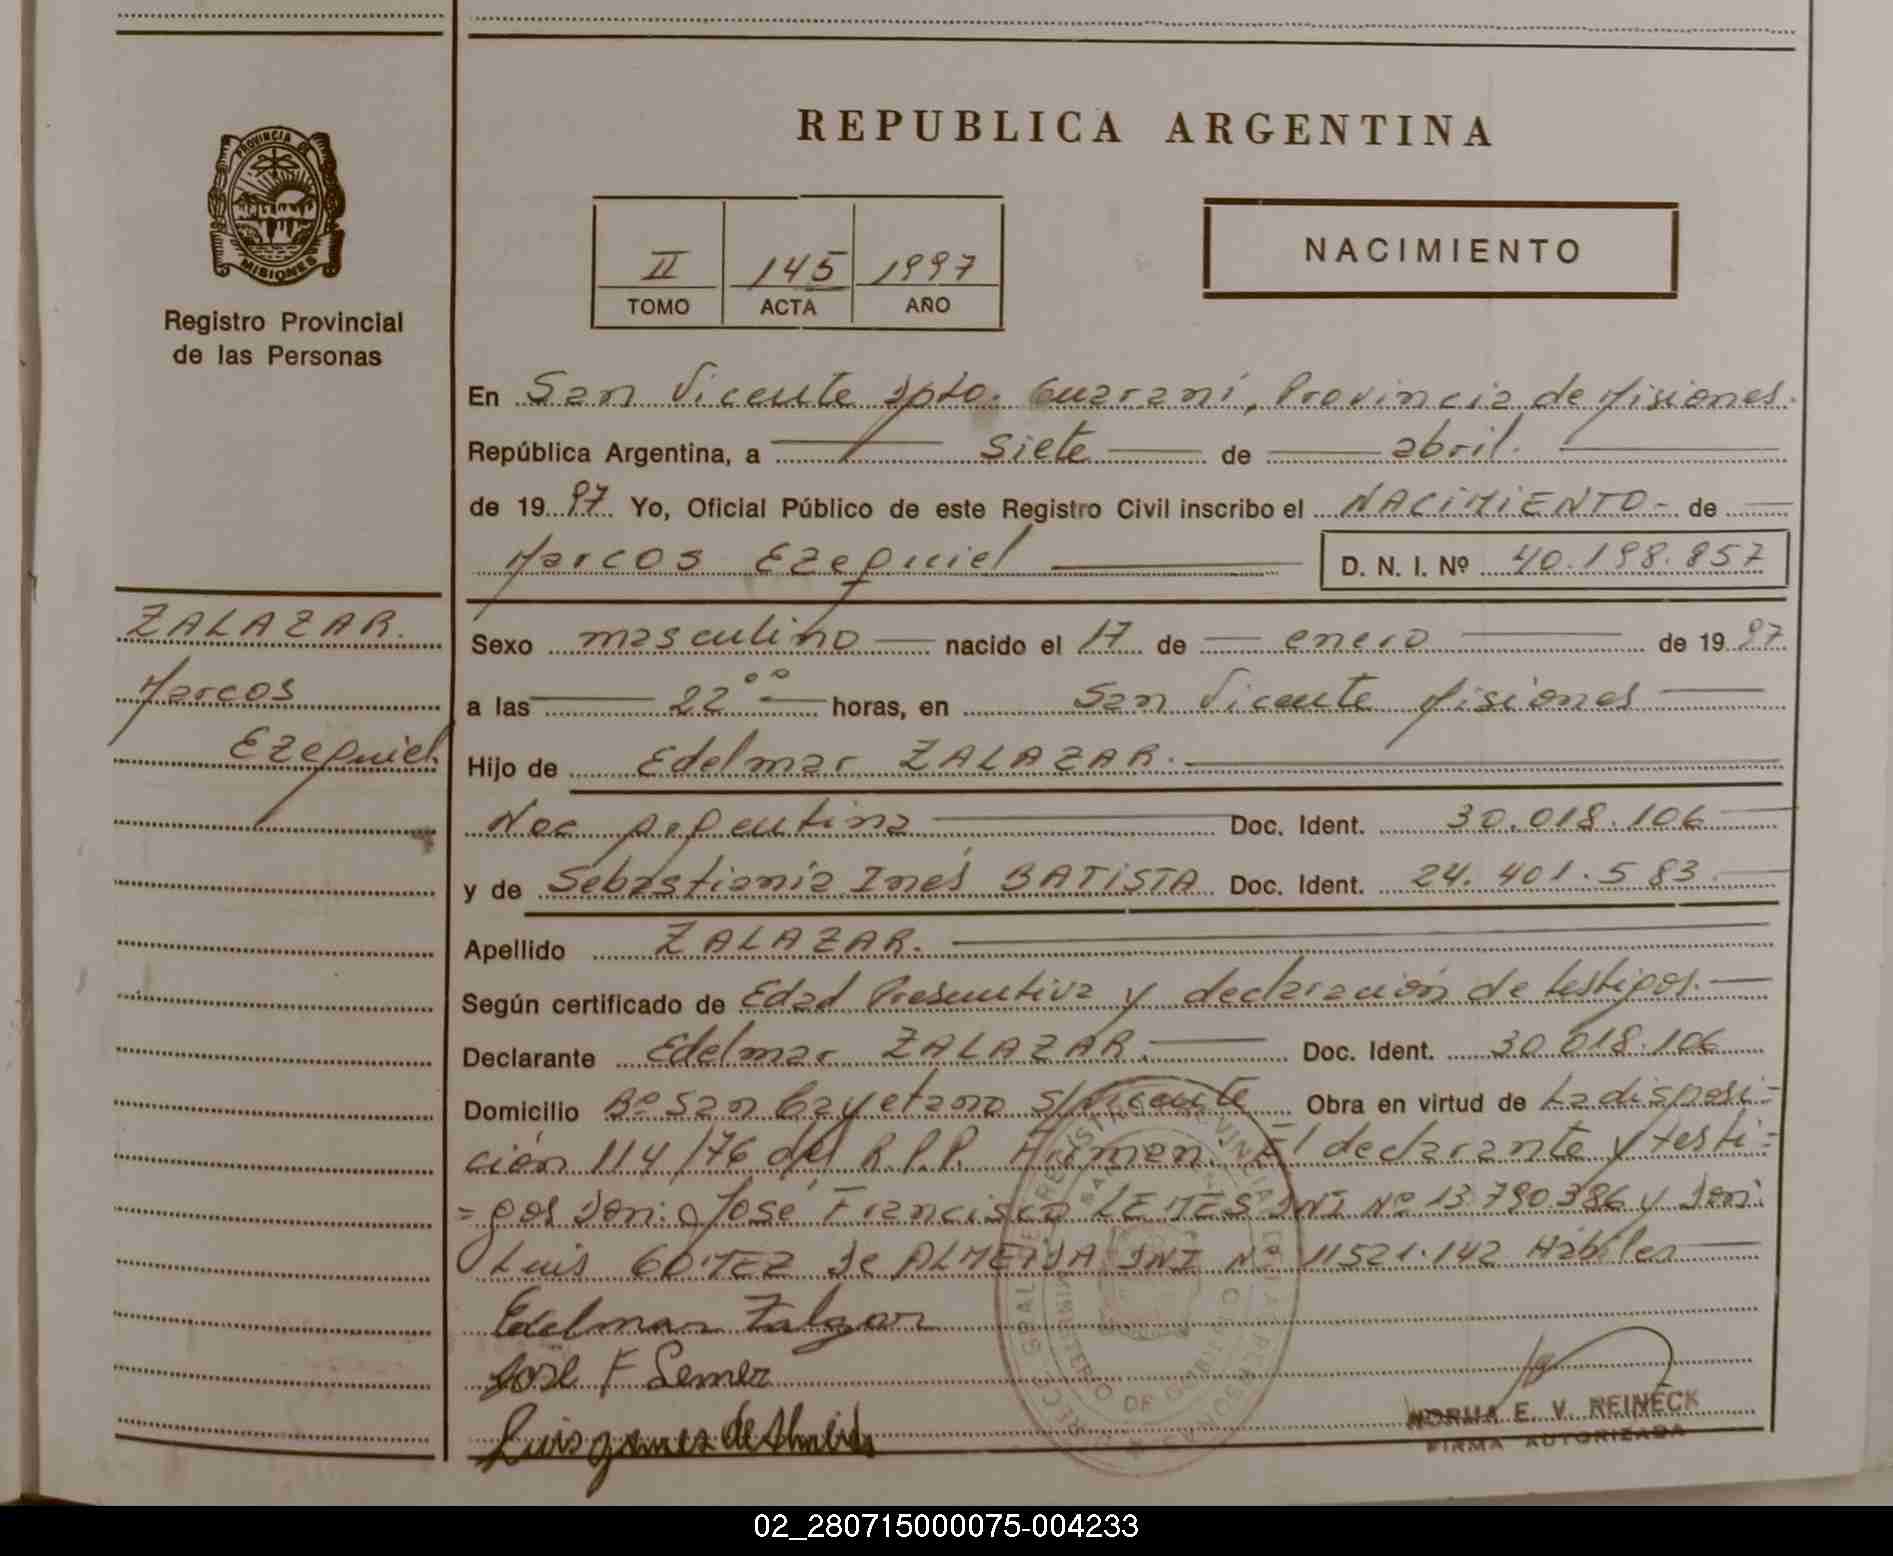 REPUBLICA ARGENTINA
PROVINCIA DE
MISIONES
Registro Provincial
de las Personas
II 145 1997
TOMO ACTA AÑO
NACIMIENTO
En San Vicente Dpto. Guaraní, Provincia de Misiones.
República Argentina, a siete de abril.
de 1997 Yo, Oficial Público de este Registro Civil inscribo el NACIMIENTO - de
Marcos Ezequiel D. N. I. Nº 40.198.857
ZALAZAR.
Marcos
Ezequiel
Sexo masculino nacido el 17 de enero de 1997
a las 22°° horas, en San Vicente Misiones
Hijo de Edelmar ZALAZAR.
Nac argentina Doc. Ident. 30.018.106
y de Sebastiania Inés BATISTA Doc. Ident. 24.401.583
Apellido ZALAZAR.
Según certificado de Edad Presuntiva y declaración de testigos.
Declarante Edelmar ZALAZAR. Doc. Ident. 30.018.106
Domicilio Bº San Cayetano S/Vicente Obra en virtud de La disposi=
ción 114/76 del R.P.P. Firman. El declarante y testi=
=gos Don: José Francisco LEITES DNI Nº 13.790.386 y Don:
Luis GOMEZ de ALMEIDA DNI Nº 11521.142 Hábiles
Edelmar Zalazar
José F
Luis gomez de Almeida
NORMA E. V. REINECK
FIRMA AUTORIZADA
02_280715000075-004233